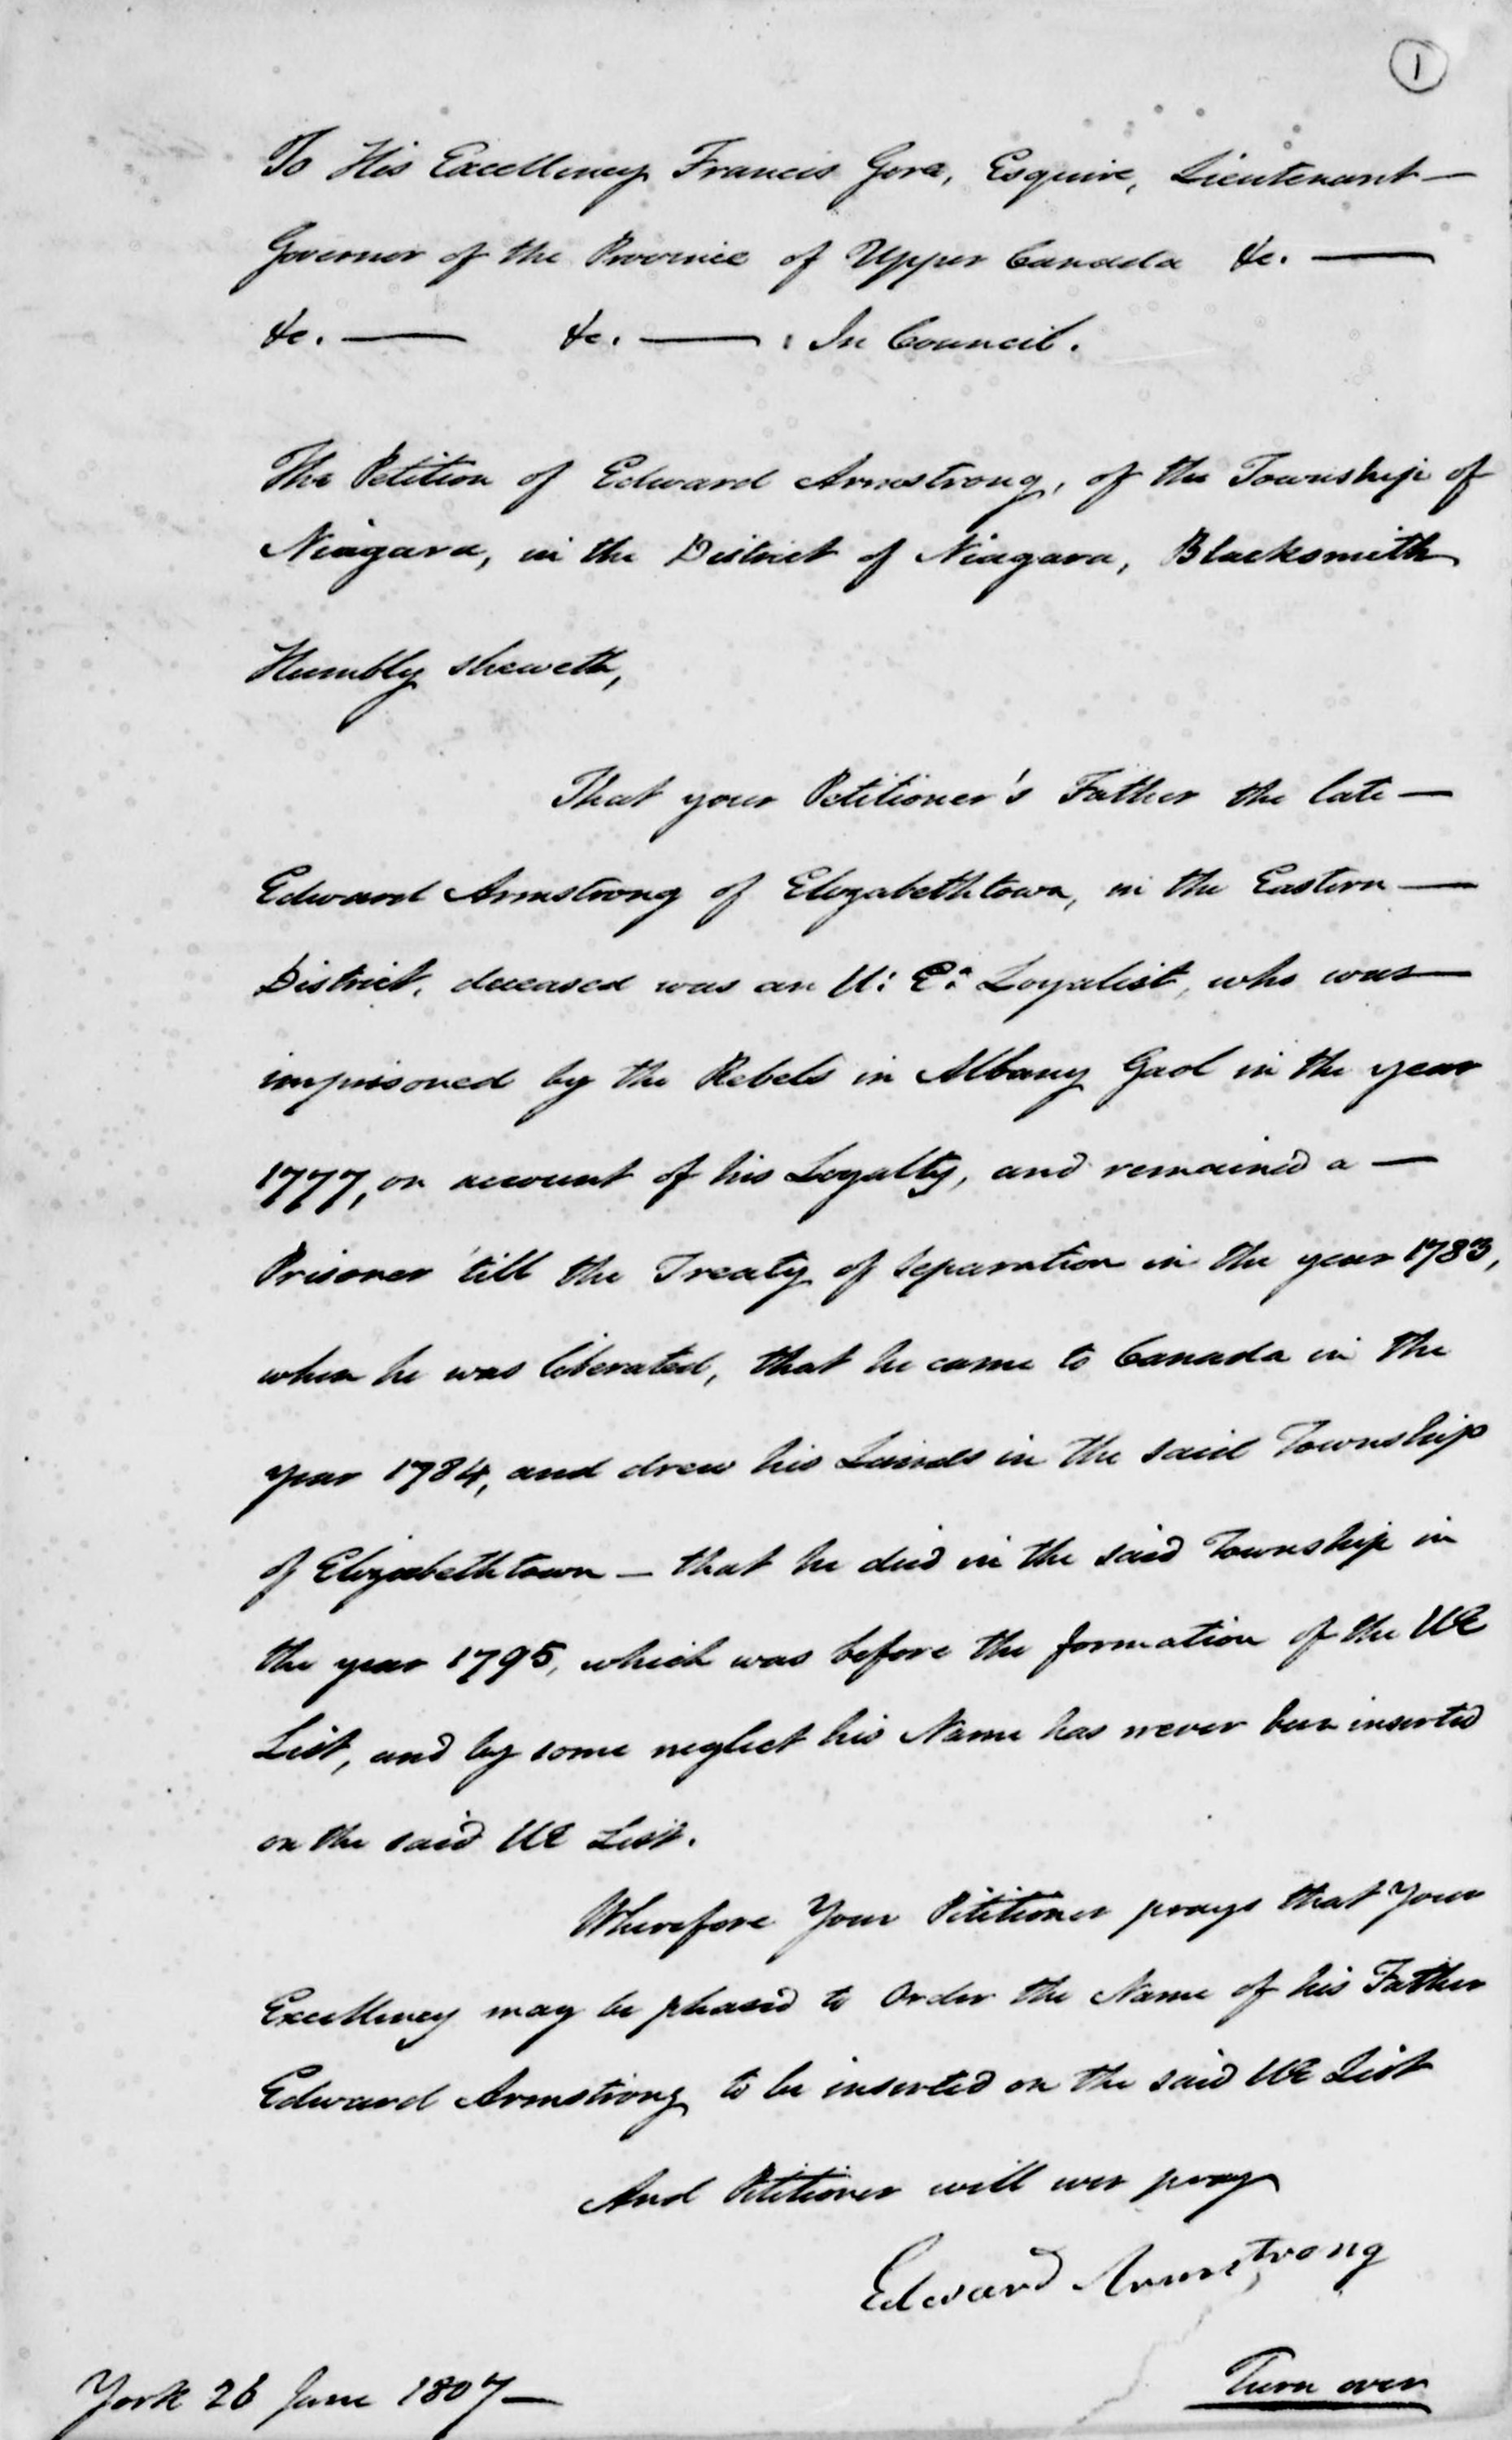 1
To His Excellency Francis Gore, Esquire, Lieutenant —
Governor of the Province of Upper Canada &c. —
&c. — &c. — : In Council.
The Petition of Edward Armstrong, of the Township of
Niagara, in the District of Niagara, Blacksmith
Humbly sheweth,
That your Petitioner's Father the late —
Edward Armstrong of Elizabethtown, in the Eastern —
District, deceased was an U: E: Loyalist, who was —
imprisoned by the Rebels in Albany Gaol in the year
1777, on account of his Loyalty, and remained a —
Prisoner 'till the Treaty of Separation in the year 1783,
when he was liberated, that he came to Canada in the
year 1784, and drew his Lands in the said Township
of Elizabethtown — that he died in the said Township in
the year 1795, which was before the formation of the UE
List, and by some neglect his Name has never been inserted
on the said UE List.
Wherefore Your Petitioner prays that Your
Excellency may be pleased to Order the Name of his Father
Edward Armstrong to be inserted on the said UE List
And Petitioner will ever pray
Edward Armstrong
York 26 June 1807 —
Turn over